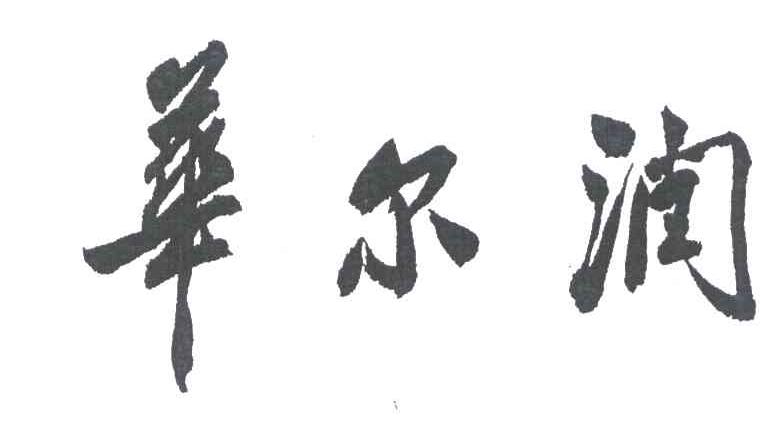 華尔润